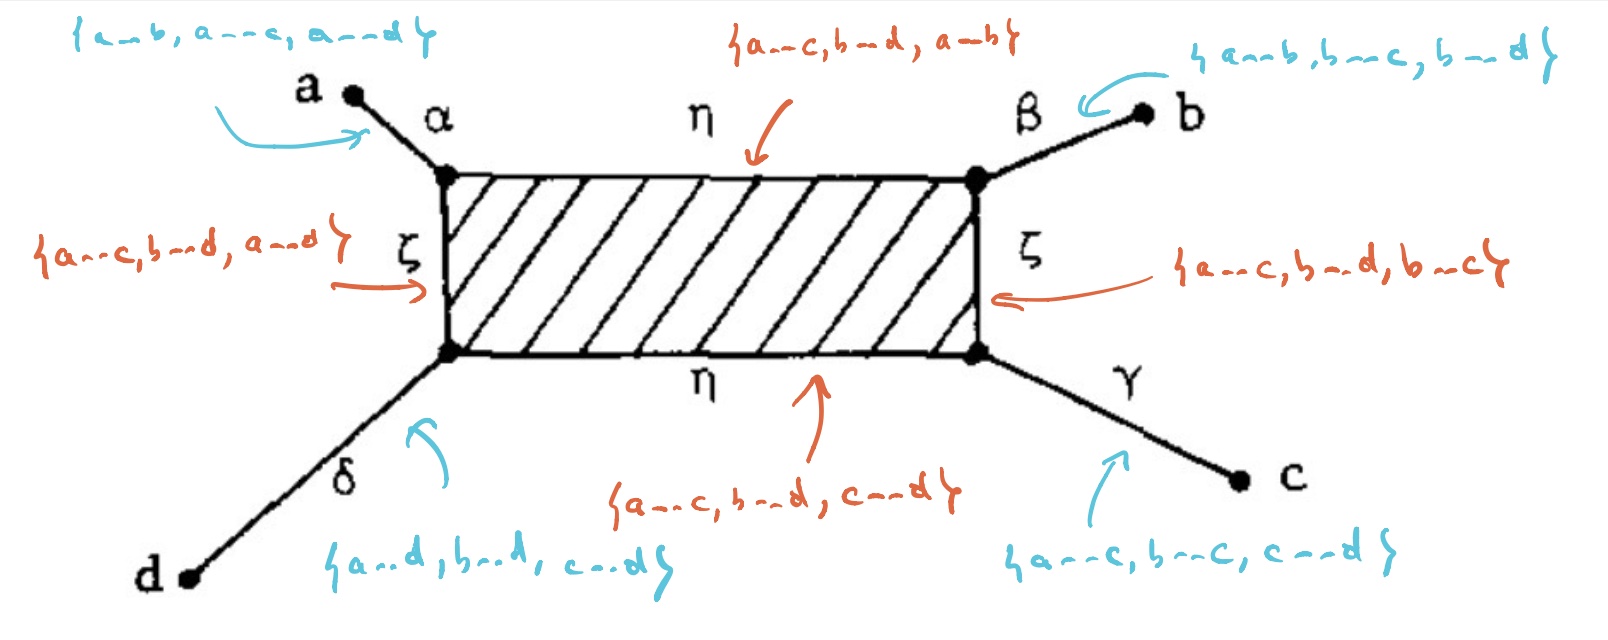 {a--b, a--c, a--d}
{a--c, b--d, a--b}
{a--b, b--c, b--d}
a
α
η
β
b
{a--c, b--d, a--d}
ζ
ζ
{a--c, b--d, b--c}
η
γ
δ
c
{a--c, b--d, c--d}
{a--d, b--d, c--d}
{a--c, b--c, c--d}
d